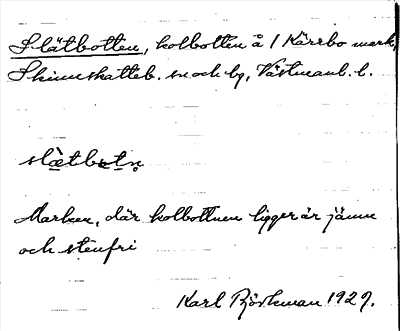 Slätbotten, kolbotten å / Kärrbo mark,
Skinnskatteb. sn och bg, Västmanl. l.
slà̤tbo̤tn̥
Marken, där kolbottnen ligger är jämn
och stenfri
Karl Björkman 1929.